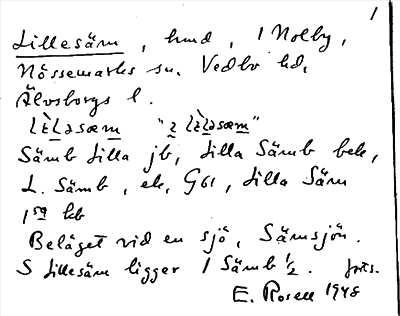 1
Lillesäm, hmd, 1 Nolby,
Nössemarks sn. Vedbo hd,
Älvsborgs l.
lɩ̀lasæm "ɩ lɩ̀lasæm"
Sämb Lilla jb, Lilla Sämb bek,
L. Sämb, ek, G61, Lilla Säm
1sa kb
Beläget vid en sjö, Sämsjön.
S Lillesäm ligger 1 Sämb 1/2. forts.
E. Rosell 1948